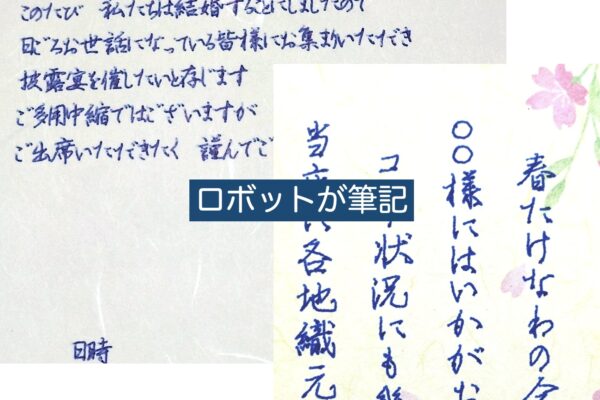 このたび 私たちは結婚することにしましたので
日ごろお世話になっている皆様にお集まりいただき
披露宴を催したいと存じます
ご多用中縮ではございますが
ご出席いただきたく 謹んでご
日時
ロボットが筆記
春たけなわの今
〇〇様にはいかがお
コ 状況にも
当 に各地織元